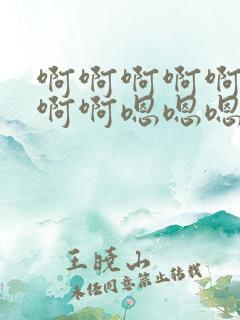 啊啊啊啊啊
啊啊嗯嗯嗯
王晓山
未经同意禁止转载